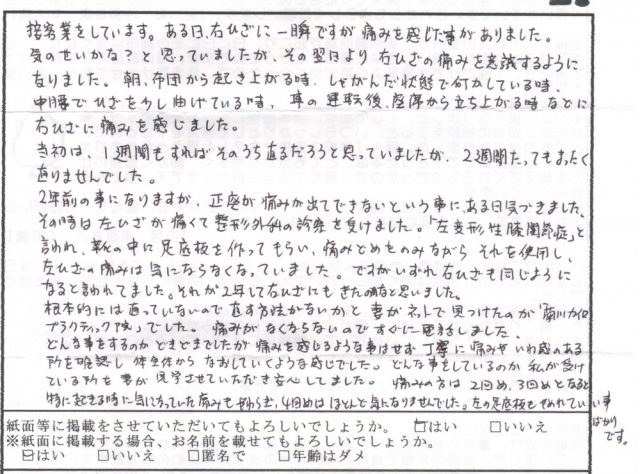 接客業をしています。ある日、右ひざに一瞬ですが痛みを感じた事がありました。
気のせいかな？と思っていましたが、その翌日より右ひざの痛みを意識するように
なりました。朝、布団から起き上がる時、しゃがんだ状態で何かしている時、
中腰でひざを少し曲げている時、車の運転後、座席から立ち上がる時などに
右ひざに痛みを感じました。
当初は、1週間もすればそのうち直るだろうと思っていましたが、2週間たってもまったく
直りませんでした。
2年前の事になりますが、正座が痛みが出てできないという事にある日気づきました。
その時は左ひざが痛くて整形外科の診察を受けました。「左変形性膝関節症」と
言われ、靴の中に足底板を作ってもらい、痛みどめをのみながらそれを使用し、
左ひざの痛みは気にならなくなっていました。ですがいずれ右ひざも同じように
なると言われてました。それが2年して右ひざにもきたのかなと思いました。
根本的には直っていないので直す方法がないかと妻がネットで見つけたのが「菊川カイロ
プラクティック院」でした。痛みがなくならないのですぐに電話しました。
どんな事をするのかどきどきでしたが痛みを感じるような事はせず丁寧に痛みやいわ感のある
所を確認し体全体からなおしていくような感じでした。どんな事をしているのか私が受け
ている所を妻が見学させていただき安心しました。痛みの方は2回め、3回めとなると
特に起きる時に気になっていた痛みもやわらぎ、4回めはほとんど気になりませんでした。左の足底板もやめれていい事
ばかり
です。
紙面等に掲載をさせていただいてもよろしいでしょうか。 ☑はい □いいえ
※紙面に掲載する場合、お名前を載せてもよろしいでしょうか。
☑はい □いいえ □匿名で □年齢はダメ